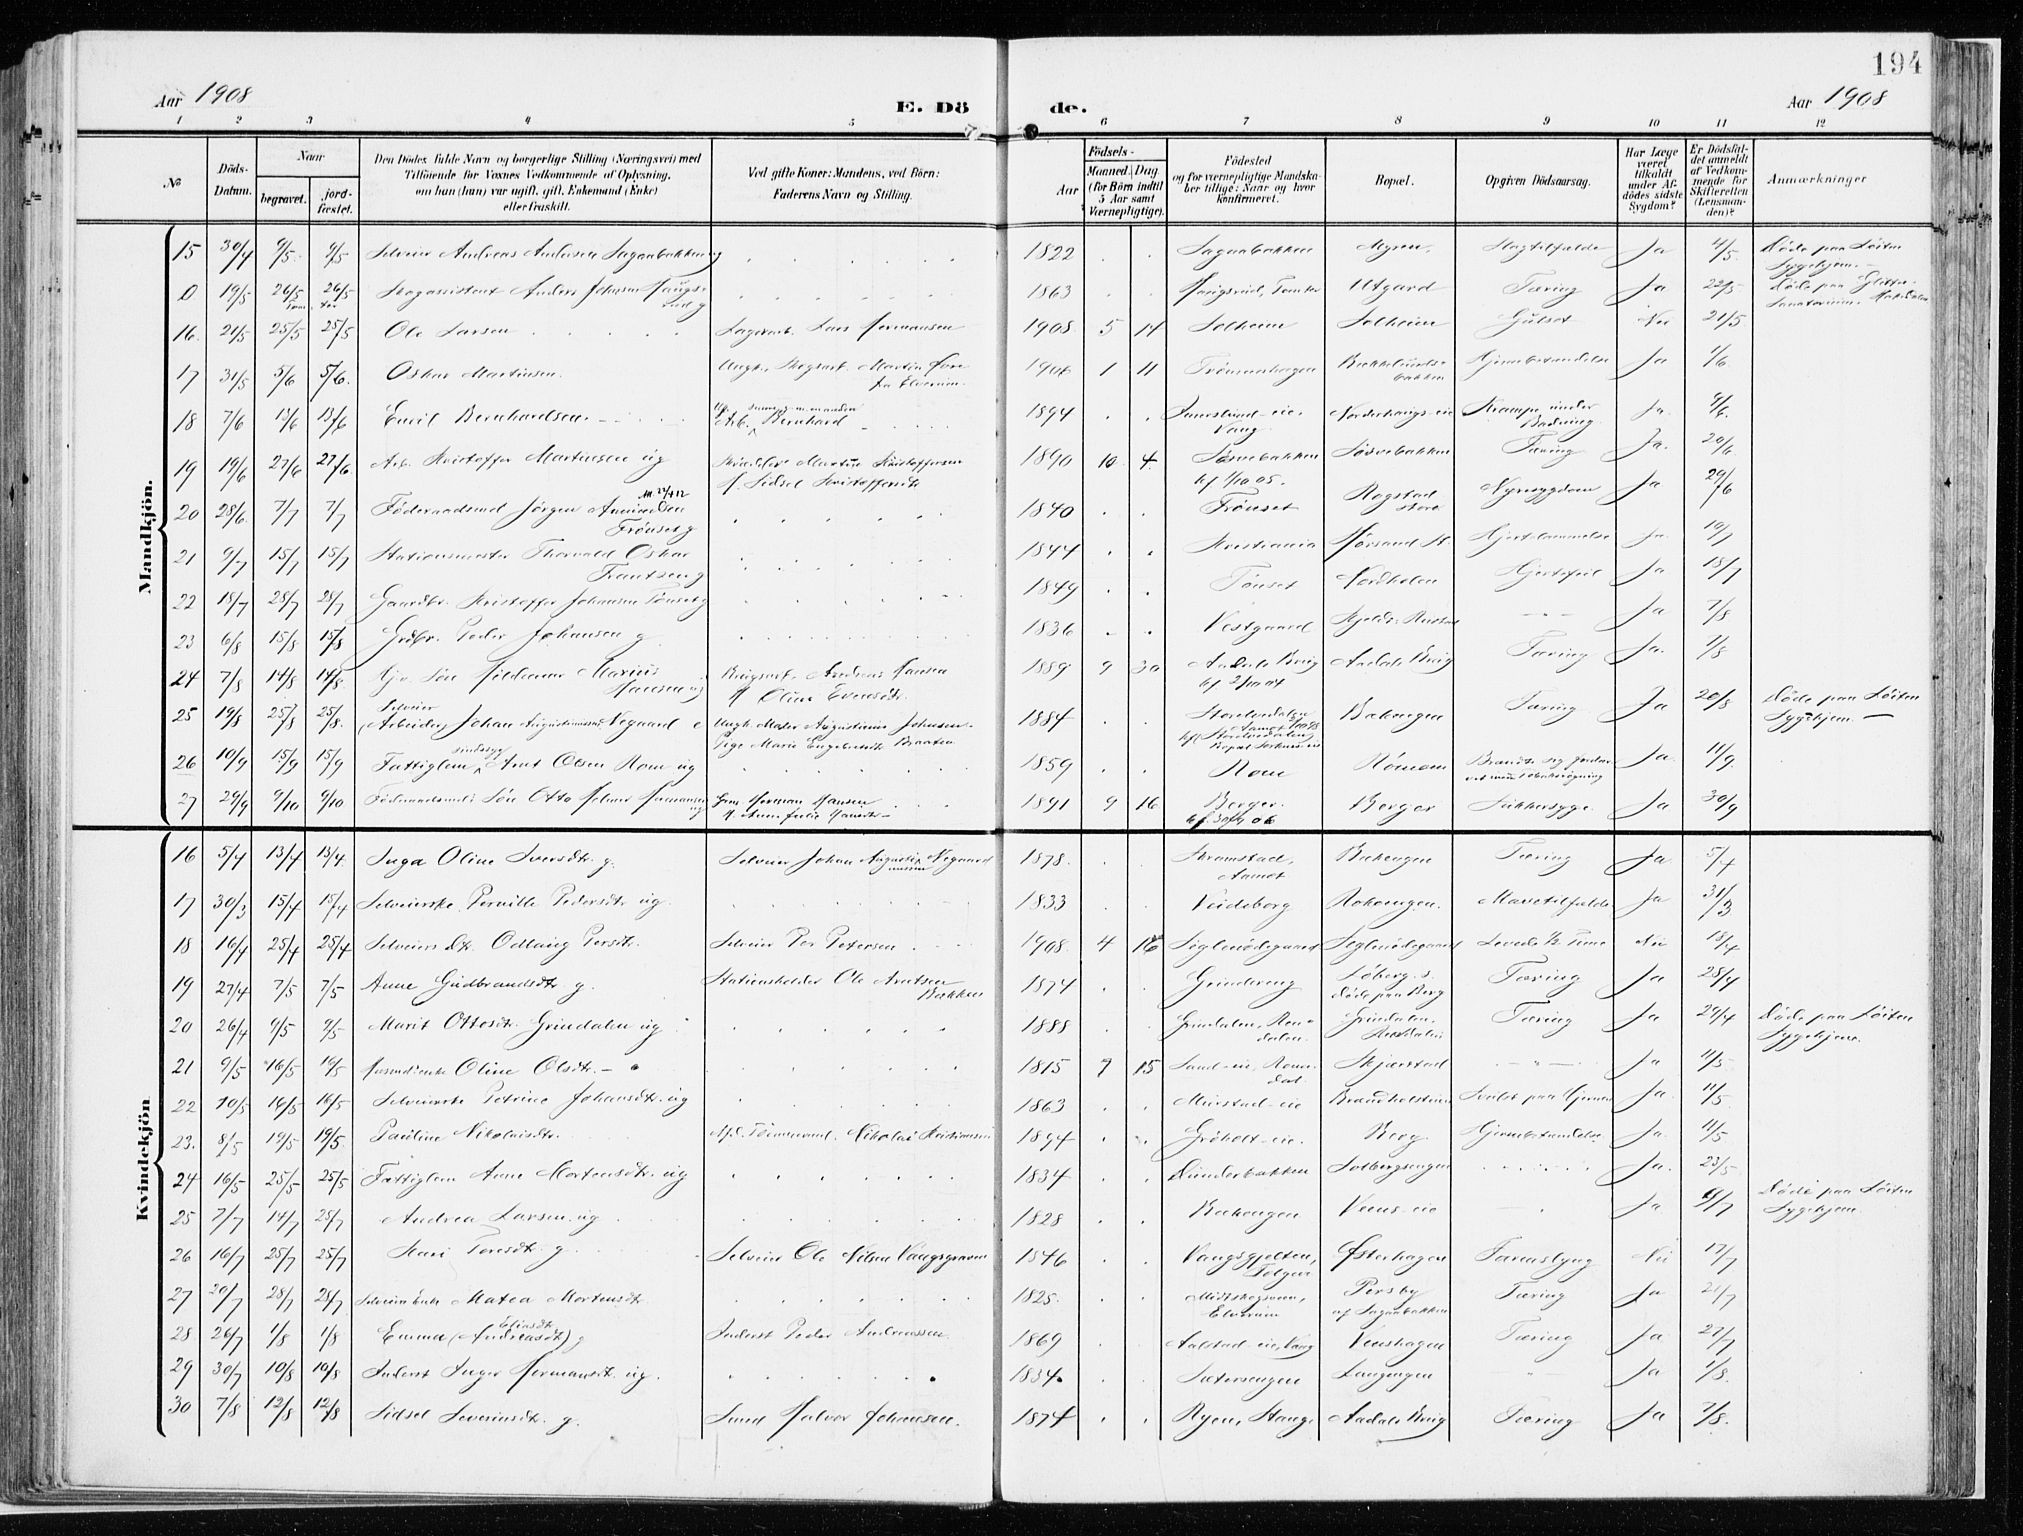 194
Aar 1908
E. Dö
de.
Aar 1908
1 2 3 4 5 6 7 8 9 10 11 12
No
Döds-
Datum.
Naar
begravet.
jord-
fæstet.
Den Dödes fulde Navn og borgerlige Stilling (Næringsvei) med
Tilföiende for Voxnes Vedkommende af Oplysning,
om han (hun) var ugift, gift, Enkemand (Enke)
eller fraskilt.
Ved gifte Koner: Mandens, ved Börn:
Faderens Navn og Stilling.
Födsels-
Aar
Maaned. Dag.
(for Börn indtil
5 Aar samt
Værnepligtige).
Födested
og for værnepligtige Mandska-
ber tillige: Naar og hvor
konfirmeret.
Bopæl.
Opgiven Dödsaarsag.
Har Læge
været
tilkaldt
under Af-
dödes sidste
Sygdom?
Er Dödsfal-
det anmeldt
af Vedkom-
mende for
Skifteretten
(Lensman-
den)?
Anmærkninger
Mandkjön.
15 30/4 9/5 9/5 Selveier Andreas Andersen Sagaabakken g 1822 Sagaabakken Myren Slagtilfælde Ja 4/5 Döde paa Löiten
Sygehjem.
0 19/5 26/5 26/5 Skogassistent Anders Johansen 1863 Utgard Tæring Ja 22/5 Döde paa Glitre
Sanatorium.
16. 21/5 25/5 25/5 Ole Larsen Lars Hermansen 1908 5 14 Solheim Solheim Gulsot Nei 21/5
17 31/5 5/6 5/6. Oskar Martinsen. Ungk. Skogsarb. Martin
fra Elverum. 1904 1 11 Trönneshagen Hjernebetændelse Ja 1/6
18 7/6 13/6 13/6 Emil Bernhardsen. Arb. Bernhard 1894 Vang. Norderhaugs-eie Krampe under
Badning. Ja. 9/6.
19 19/6 27/6 27/6 Arb. Kristoffer Martinsen ug Martin Kristoffersen
H. Sidsel Kristoffersdtr 1890 10 4. Sösvebakken
kf 1/10 05. Sösvebakken Tæring Ja. 20/6
20 28/6. 7/7 7/7 Föderaadsmd Jörgen
Frönset g 1840 Frönset Rogstad
store Nyresygdom Ja 29/6
21 9/7 15/7 15/7 Stationsmester Thorvald Oskar
Frantsen g 1844 Kristiania Hjertelammelse Ja 10/7
22 18/7 28/7 28/7 Gaardbr. Kristoffer Johansen Tönset g 1849 Tönset Nordholen Hjertefeil Ja 18/7
23 6/8 15/8 15/8 Grdbr. Peder Johansen g 1836 Vestgaard Ja 7/8
24 7/8 14/8 14/8. Sön Hildemar Marius
Hansen ug Andreas Hansen
H Oline Evensdtr. 1889 9 30 Aadals Brug
kf 2/10 04 Aadals Brug Tæring Ja. 1/8
25 19/8 25/8 25/8. Selveier
(Arbeider) Johan Augustinussen Nygaard e Ungk. Maler Augustinus Johnsen
Pige Marie Engebretsdtr Braaten 1884 Storelvedalen Bækengen Tæring Ja 20/8 Döde paa Löiten
Sygehjem.
26 10/9 15/9 15/9 Fattiglem sindssyg Arnt Olsen Rom ug 1859 Rom Römoen Ja. 11/9.
27 29/9 9/10 9/10 Sön Otto Helmer Hermansen
ug Herman Hansen
H. Anne Julie Hansdtr 1891 9 16 Berger.
kf. 30/9 06 Berger Sukkersyge. Ja 30/9
Kvindekjön
16 5/4 13/4 13/4. Inga Oline Iversdtr. g. Selveier Johan Augustinussen Nygaard 1878. Kramstad,
Aamot Bækengen Tæring Ja 5/4
17 30/3 15/4 15/4 Selveierske Pernille Pedersdtr ug. 1833 Veideborg Rokoengen. Mavetilfælde Ja 31/3
18 16/4 25/4 25/4 Selveiers dtr. Odlaug Persdtr. Selveier Per Petersen 1908. 4 16 Seglenödegaard Seglenödegaard Levede 1/2 Time Nei 18/4
19 27/4 7/5 7/5 Anne Gudbrandsdtr g. Stationsholder Ole Arntsen
Bakken 1874 Grindereng Löberg s.
Döde paa Berg Tæring Ja 28/4
20 26/4 9/5 9/5 Marit Ottosdtr. Grindalen ug 1888 Grindalen, Ren-
dalen. Grindalen,
Rendalen Tæring Ja 29/4 Döde paa Löiten
Sygehjem.
21 9/5 16/5 16/5 Oline Olsdtr. 1815 9 15 Sand-eie, Roms-
dal. Skjærstad Ja 11/5
22 10/5 16/5 16/5 Selveierske Petrine Johansdtr. ug 1863 Mierstad-eie Ja. 11/5.
23. 8/5 19/5 19/5. Pauline Nikolaisdtr. Afd. Tömmermd. Nikolai Kristiansen 1894 Gröholt-eie. Berg. Hjernebetændelse Ja. 11/5
24 16/5 25/5 25/5 Fattiglem Anne Mortensdtr. ug 1834 Dunderbakken Solbergsengen Ja. 23/5
25 7/7 14/7 25/7 Andrea Larsen. ug 1828 Bækengen Veens-eie Ja 9/7 Döde paa Löiten
Sygehjem.
26 16/7 25/7 25/7 Kari Toresdtr. g. Selveier Ole Nilsen Vangsgraven 1846 Vangsgjelten,
Tolgen Østerhagen Tarmslyng Nei 17/7
27 20/7 28/7 28/7 Selveierenke Matea Mortensdtr. 1825. Midtskogsveen,
Elverum Persby
af Sagaabakken Tæring Ja 21/7
28 26/7 1/8 1/8 Emma Eliasdtr
(Andreasdtr) g Inderst Peder Andreassen 1869 Aalstad-eie, Vang Veenshagen Tæring Ja 27/7
29 30/7 10/8 10/8 Inderst Inger Hermansdtr. ug. 1834. Sætersengen Langengen Ja 1/8.
30 7/8 12/8 12/8 Sidsel Severinsdtr. g. Smed Halvor Johansen. 1874 Ryen, Stange Aadals Brug Tæring Ja 7/8.